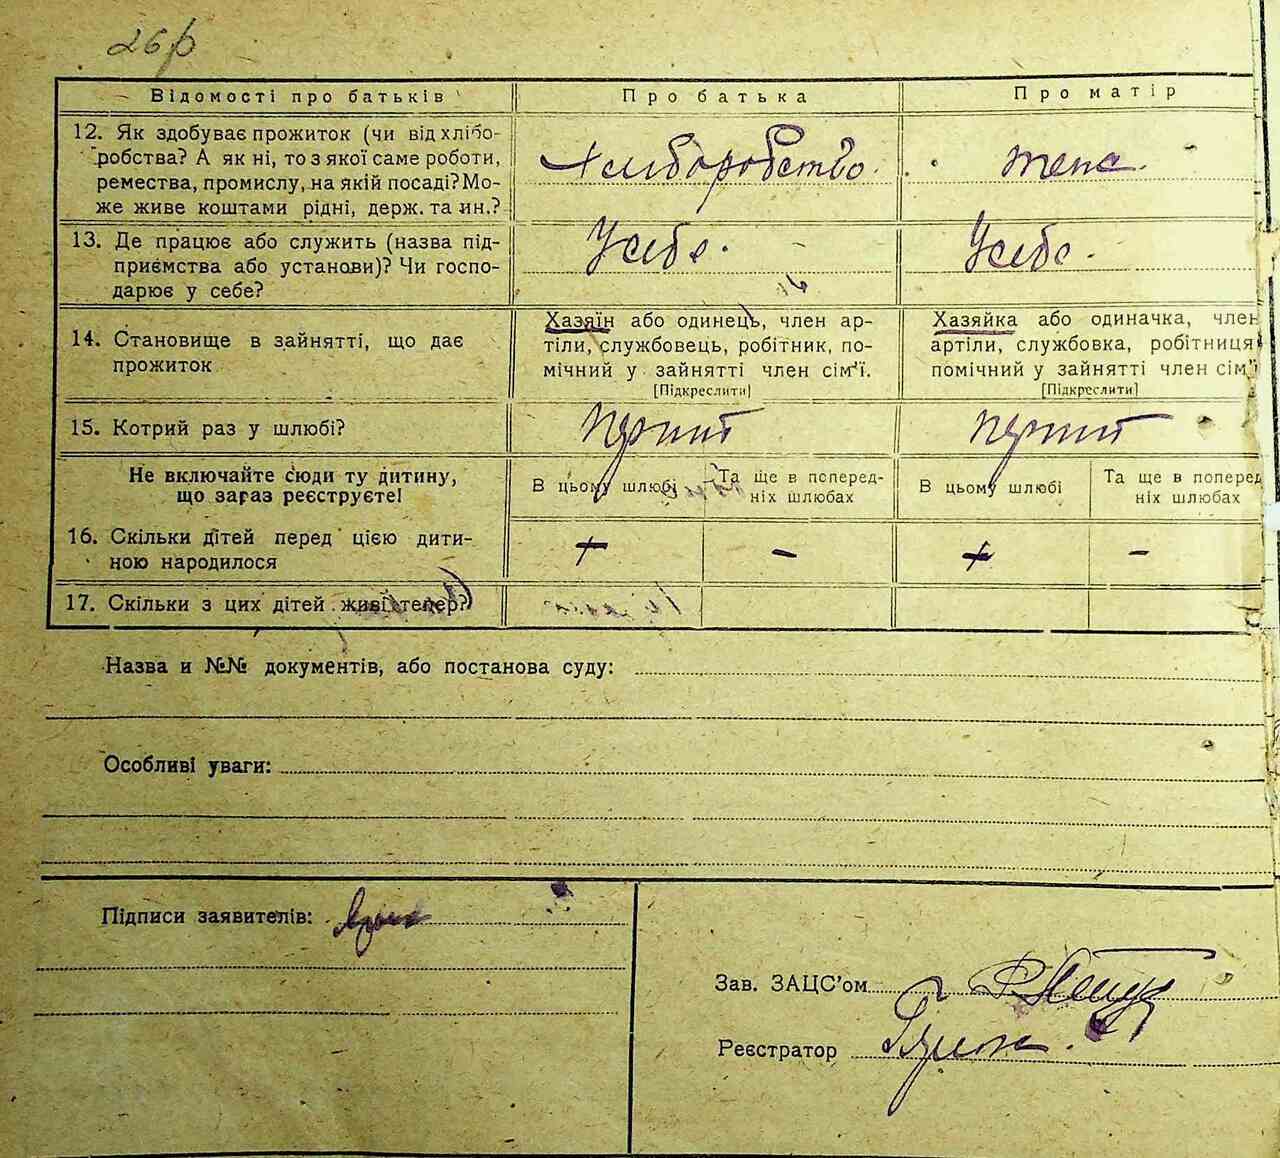 26 р
Відомості про батьків
Про батька
Про матір
12. Як здобуває прожиток (чи від хлібо-
робства? А як ні, то з якої саме роботи,
ремества, промислу, на якій посаді? Мо-
же живе коштами рідні, держ. та ин.?
Хлиборобство.
13. Де працює або служить (назва під-
приємства або установи)? Чи госпо-
дарює у себе?
Усебе.
Усебе.
14. Становище в зайнятті, що дає
прожиток
Хазяїн або одинець, член ар-
тіли, службовець, робітник, по-
мічний у зайнятті член сім'ї.
[Підкреслити]
Хазяйка або одиначка, член
артіли, службовка, робітниця
помічний у зайнятті член сім'ї
[Підкреслити]
15. Котрий раз у шлюбі?
Не включайте сюди ту дитину,
що зараз реєструєте!
В цьому шлюбі
Та ще в поперед-
ніх шлюбах
В цьому шлюбі
Та ще в поперед
ніх шлюбах
16. Скільки дітей перед цією дити-
ною народилося
+
-
+
-
17. Скільки з цих дітей живі тепер?
Назва и №№ документів, або постанова суду:
Особливі уваги:
Підписи заявителів:
Зав. ЗАЦС'ом
Реєстратор